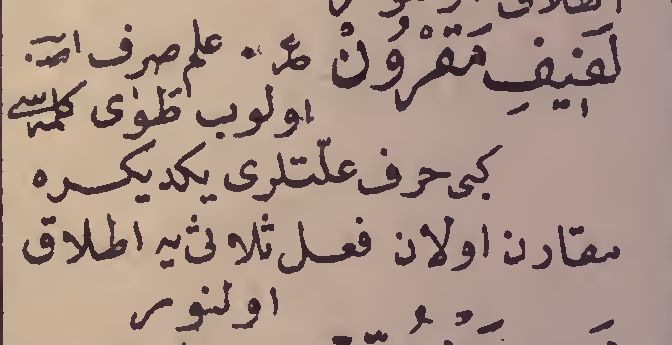 لَفِيفِ مَقْرُونْ علم صرف
اولوب طَوٰى كلمه سى
كبى حرف علّتلرى يكديكره
مقارن اولان فعل ثلاثى يه اطلاق
اولنور